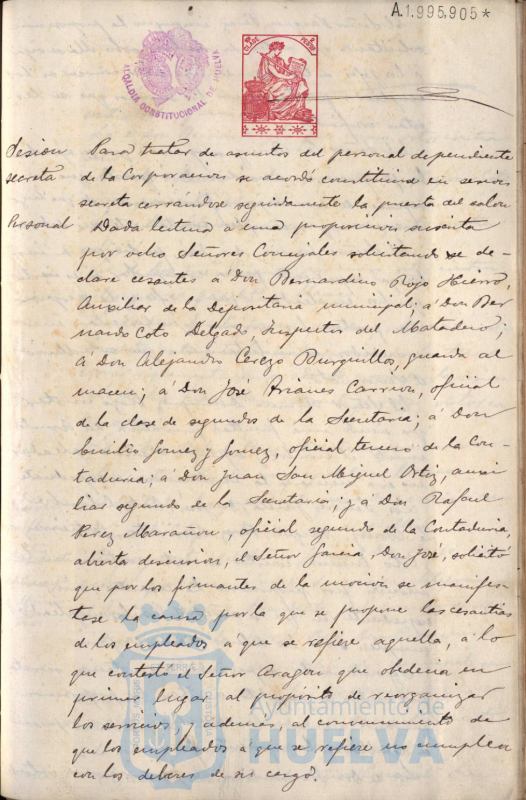 A.1.995.905*
ALCALDIA CONSTITUCIONAL DE HUELVA
Sesion secreta
Para tratar de asuntos del personal dependiente
de la Corporacion se acordó constituirse en sesion
secreta cerrándose seguidamente la puerta del salon
Personal
Dada lectura á una proposicion suscrita
por ocho Señores Concejales solicitando se de-
clare cesantes á Don Bernardino Rojo Hierro,
Auxiliar de la Depositaria municipal; á Don Ber
nardo Coto Delgado Inspector del Matadero;
á Don Alejandro Cerezo Burguillos, guarda al
macen; á Don José Arianes Carrion, oficial
de la clase de segundos de la Secretaria; á Don
Emilio Gomez y Gomez, oficial tercero de la Con-
taduria; á Don Juan San Miguel Ortiz, auxi
liar segundo de la Secretaria; y á Don Rafael
Perez Marañon, oficial segundo de la Contaduria,
abierta discusion, el Señor Garcia, Don José, solicitó
que por los firmantes de la mocion se manifes-
tase la causa por la que se propone las cesantias
de los empleados á que se refiere aquella, á lo
que contestó el Señor Aragon que obedecia en
primer lugar al propósito de reorganizar
los servicios, y además, al convencimiento de
que los empleados á que se refiere no cumplen
con los deberes de su cargo.
Ayuntamiento de
HUELVA